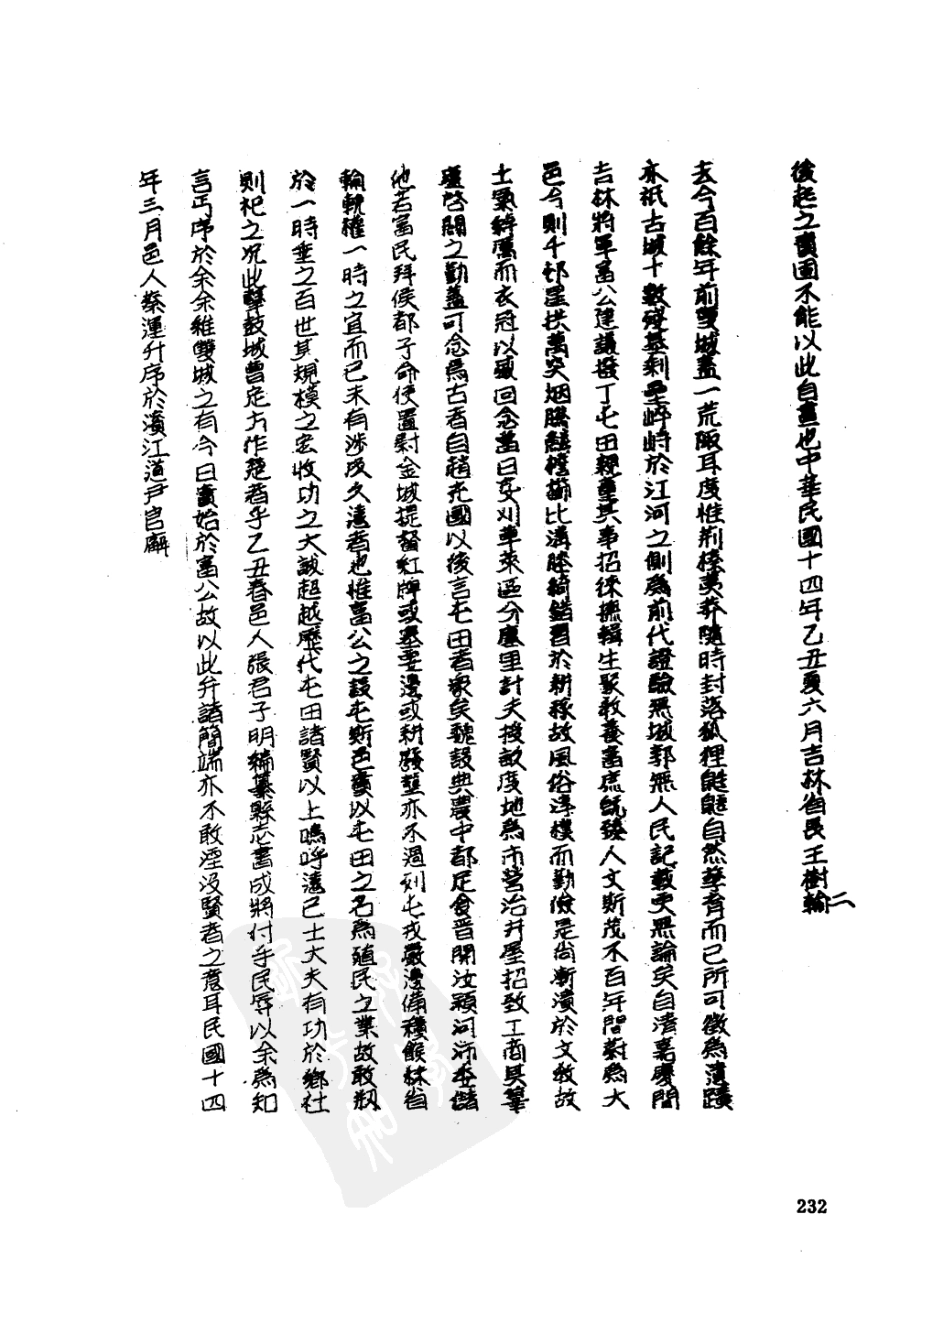 後起之責固不能以此自畫也中華民國十四年乙丑夏六月吉林省長王樹翰
二
去今百餘年前雙城蓋一荒陬耳度惟荊榛莫莽隨時封落狐狸鼪鼯自然孳育而已所可徵為遺蹟
亦祇古城十數殘基剩壘峙於江河之側為前代證驗無城郭無人民記載更無論矣自清嘉慶間
吉林將軍富公建議撥丁屯田親董其事招徠撫輯生聚教養富庶既臻人文斯茂不百年間蔚為大
邑今則千邨星拱萬突烟騰櫛比溝塍綺錯習於耕稼故風俗淳樸而勤儉是尚漸漬於文教故
士氣醇厲而衣冠以盛回念當日芟刈草萊區分廛里計夫授畝度地為市營治井屋招致工商其篳
路啓闢之勤蓋可念焉古者自趙充國以後言屯田者衆矣魏設典農中都足食晉開汝潁河沛坐儲
他若富民拜侯都子命使置尉金城提督紅牌或塞要邊或耕廢壟亦不過列屯戎嚴邊備積餱秣省
輪輓權一時之宜而已未有涉及久遠者也惟富公之設屯斯邑實以屯田之名為殖民之業故敢創
於一時垂之百世其規模之宏收功之大誠超越歷代屯田諸賢以上嗚呼遠已士大夫有功於鄉社
則祀之況此鼛鼓城曾定方作楚者乎乙丑春邑人張君子明編纂縣志書成將付手民辱以余為知
言丐序於余余維雙城之有今日實始於富公故以此弁諸簡端亦不敢湮沒賢者之意耳民國十四
年三月邑人蔡運升序於濱江道尹官廨
232